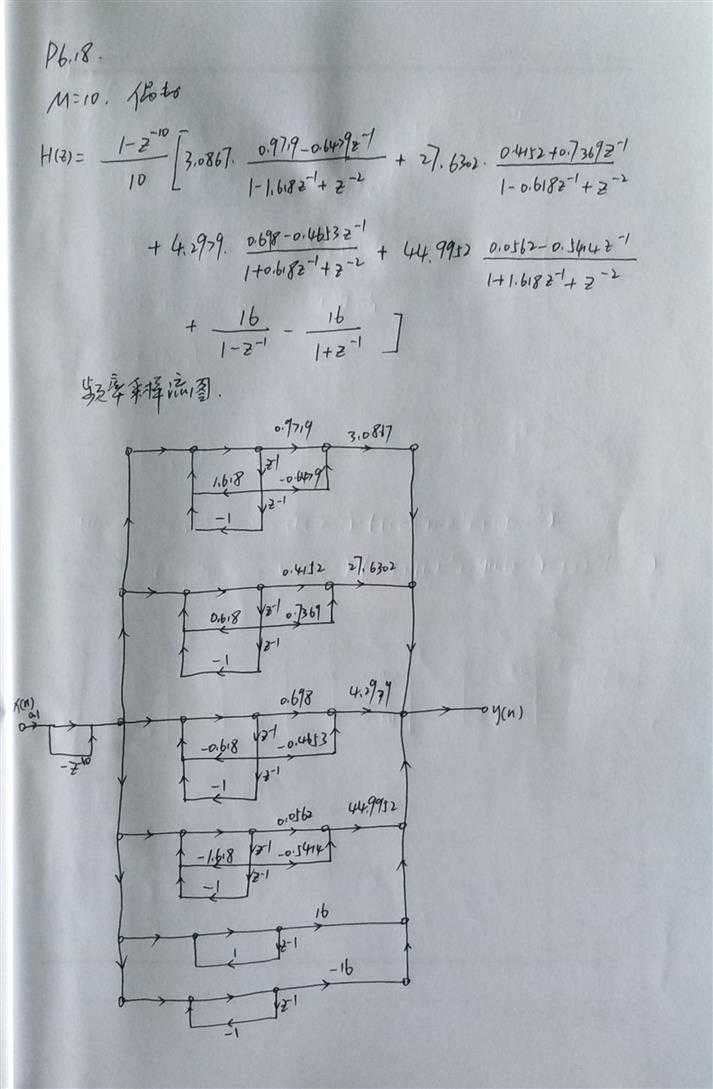 P6.18.
M=10. 偶对
H(z)= \frac{1-z^{-10}}{10} [ 3.0867· \frac{0.979-0.6479z^{-1}}{1-1.618z^{-1}+z^{-2}} + 27.6302· \frac{0.4152+0.7369z^{-1}}{1-0.618z^{-1}+z^{-2}}
+ 4.2979· \frac{0.698-0.4653z^{-1}}{1+0.618z^{-1}+z^{-2}} + 44.9952 \frac{0.0562-0.5414z^{-1}}{1+1.618z^{-1}+z^{-2}}
+ \frac{16}{1-z^{-1}} - \frac{16}{1+z^{-1}} ]
频率采样流图.
0.979 3.0867
z-1
1.618 -0.6479
z-1
-1
0.4152 27.6302
z-1
0.618 0.7369
z-1
-1
x(n)
0.1
-z^{-10}
0.698 4.2979
y(n)
z-1
-0.618 -0.4653
z-1
-1
0.0562 44.9952
z-1
-1.618 -0.5414
z-1
-1
16
z-1
1
-16
z-1
-1